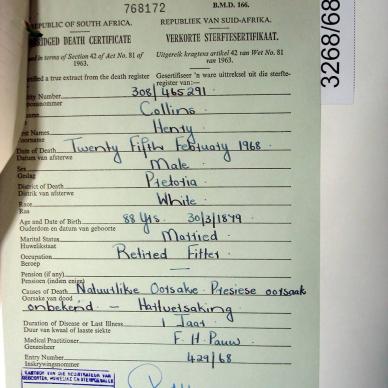 768172
B.M.D. 166.
REPUBLIC OF SOUTH AFRICA.
REPUBLIEK VAN SUID-AFRIKA.
DEATH CERTIFICATE
VERKORTE STERFTESERTIFIKAAT.
in terms of Section 42 of Act No. 81 of 1963.
Uitgereik kragtens artikel 42 van Wet No. 81 van 1963.
a true extract from the death register
Gesertifiseer 'n ware uittreksel uit die sterfteregister van:—
Number 308/465291
Collins
Names Henry
Date of Death Twenty Fifth February 1968
Datum van afsterwe
Sex Male
Geslag
District of Death Pretoria
Distrik van afsterwe
Race White
Ras
Age and Date of Birth 88 Yrs. 30/3/1879
Ouderdom en datum van geboorte
Marital Status Married
Huwelikstaat
Occupation Retired Fitter
Beroep
Pension (if any) —
Pensioen (indien enige)
Causes of Death Natuurlike Oorsake. Presiese oorsaak
Oorsake van dood onbekend — Hartversaking
Duration of Disease or Last Illness 1 Jaar
Duur van kwaal of laaste siekte
Medical Practitioner F. H. Pauw
Geneesheer
Entry Number 429/68
Inskrywingsnommer
KANTOOR VAN DIE REGISTRATEUR VAN
GEBOORTES, HUWELIKE EN STERFGEVALLE
3268/68